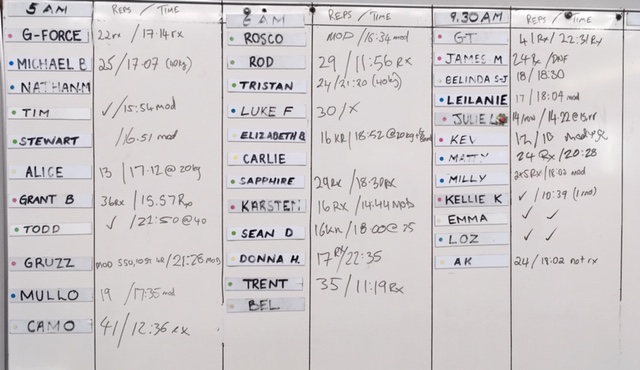 5 AM REPS / TIME
G-FORCE 22rx / 17.14 rx
MICHAEL B 25/17.07 (40kg)
NATHAN.M
TIM ✓/15:54 mod
STEWART /16.51 mod
ALICE 13 / 17.12 @ 20kg
GRANT B 36Rx / 15.57 Rx
TODD ✓ /21:50 @40
GRUZZ /21:28 MOD
MULLO 19 /17:35 mod
CAMO 41/12:36 rx
AM REPS / TIME
ROSCO MOD /16:34 mod
ROD 29 / 11:56 RX
TRISTAN 24/21:20 (40kg)
LUKE F 30/X
ELIZABETH B 16 KR/18:52 @20kg
CARLIE
SAPPHIRE 29Rx / 18:30Rx
KARSTEN 16 RX / 14.44 MOD
SEAN D 16KR/ 18:00@ 25
DONNA H. 17 RX/22:35
TRENT 35/11:19 Rx
BEL
9.30 AM REPS / TIME
GT 41 Rx / 22:31 Rx
JAMES M 24 Rx /DNF
BELINDA S-J 18/ 18:30
LEILANIE 17 / 18:04 mod
JULIE L
KEV
MATTY 24 Rx /20:28
MILLY 25Rx /18:02 mod
KELLIE K ✓ / 10:39
EMMA ✓ ✓
LOZ ✓ ✓
AK 24/ 19:02 not rx